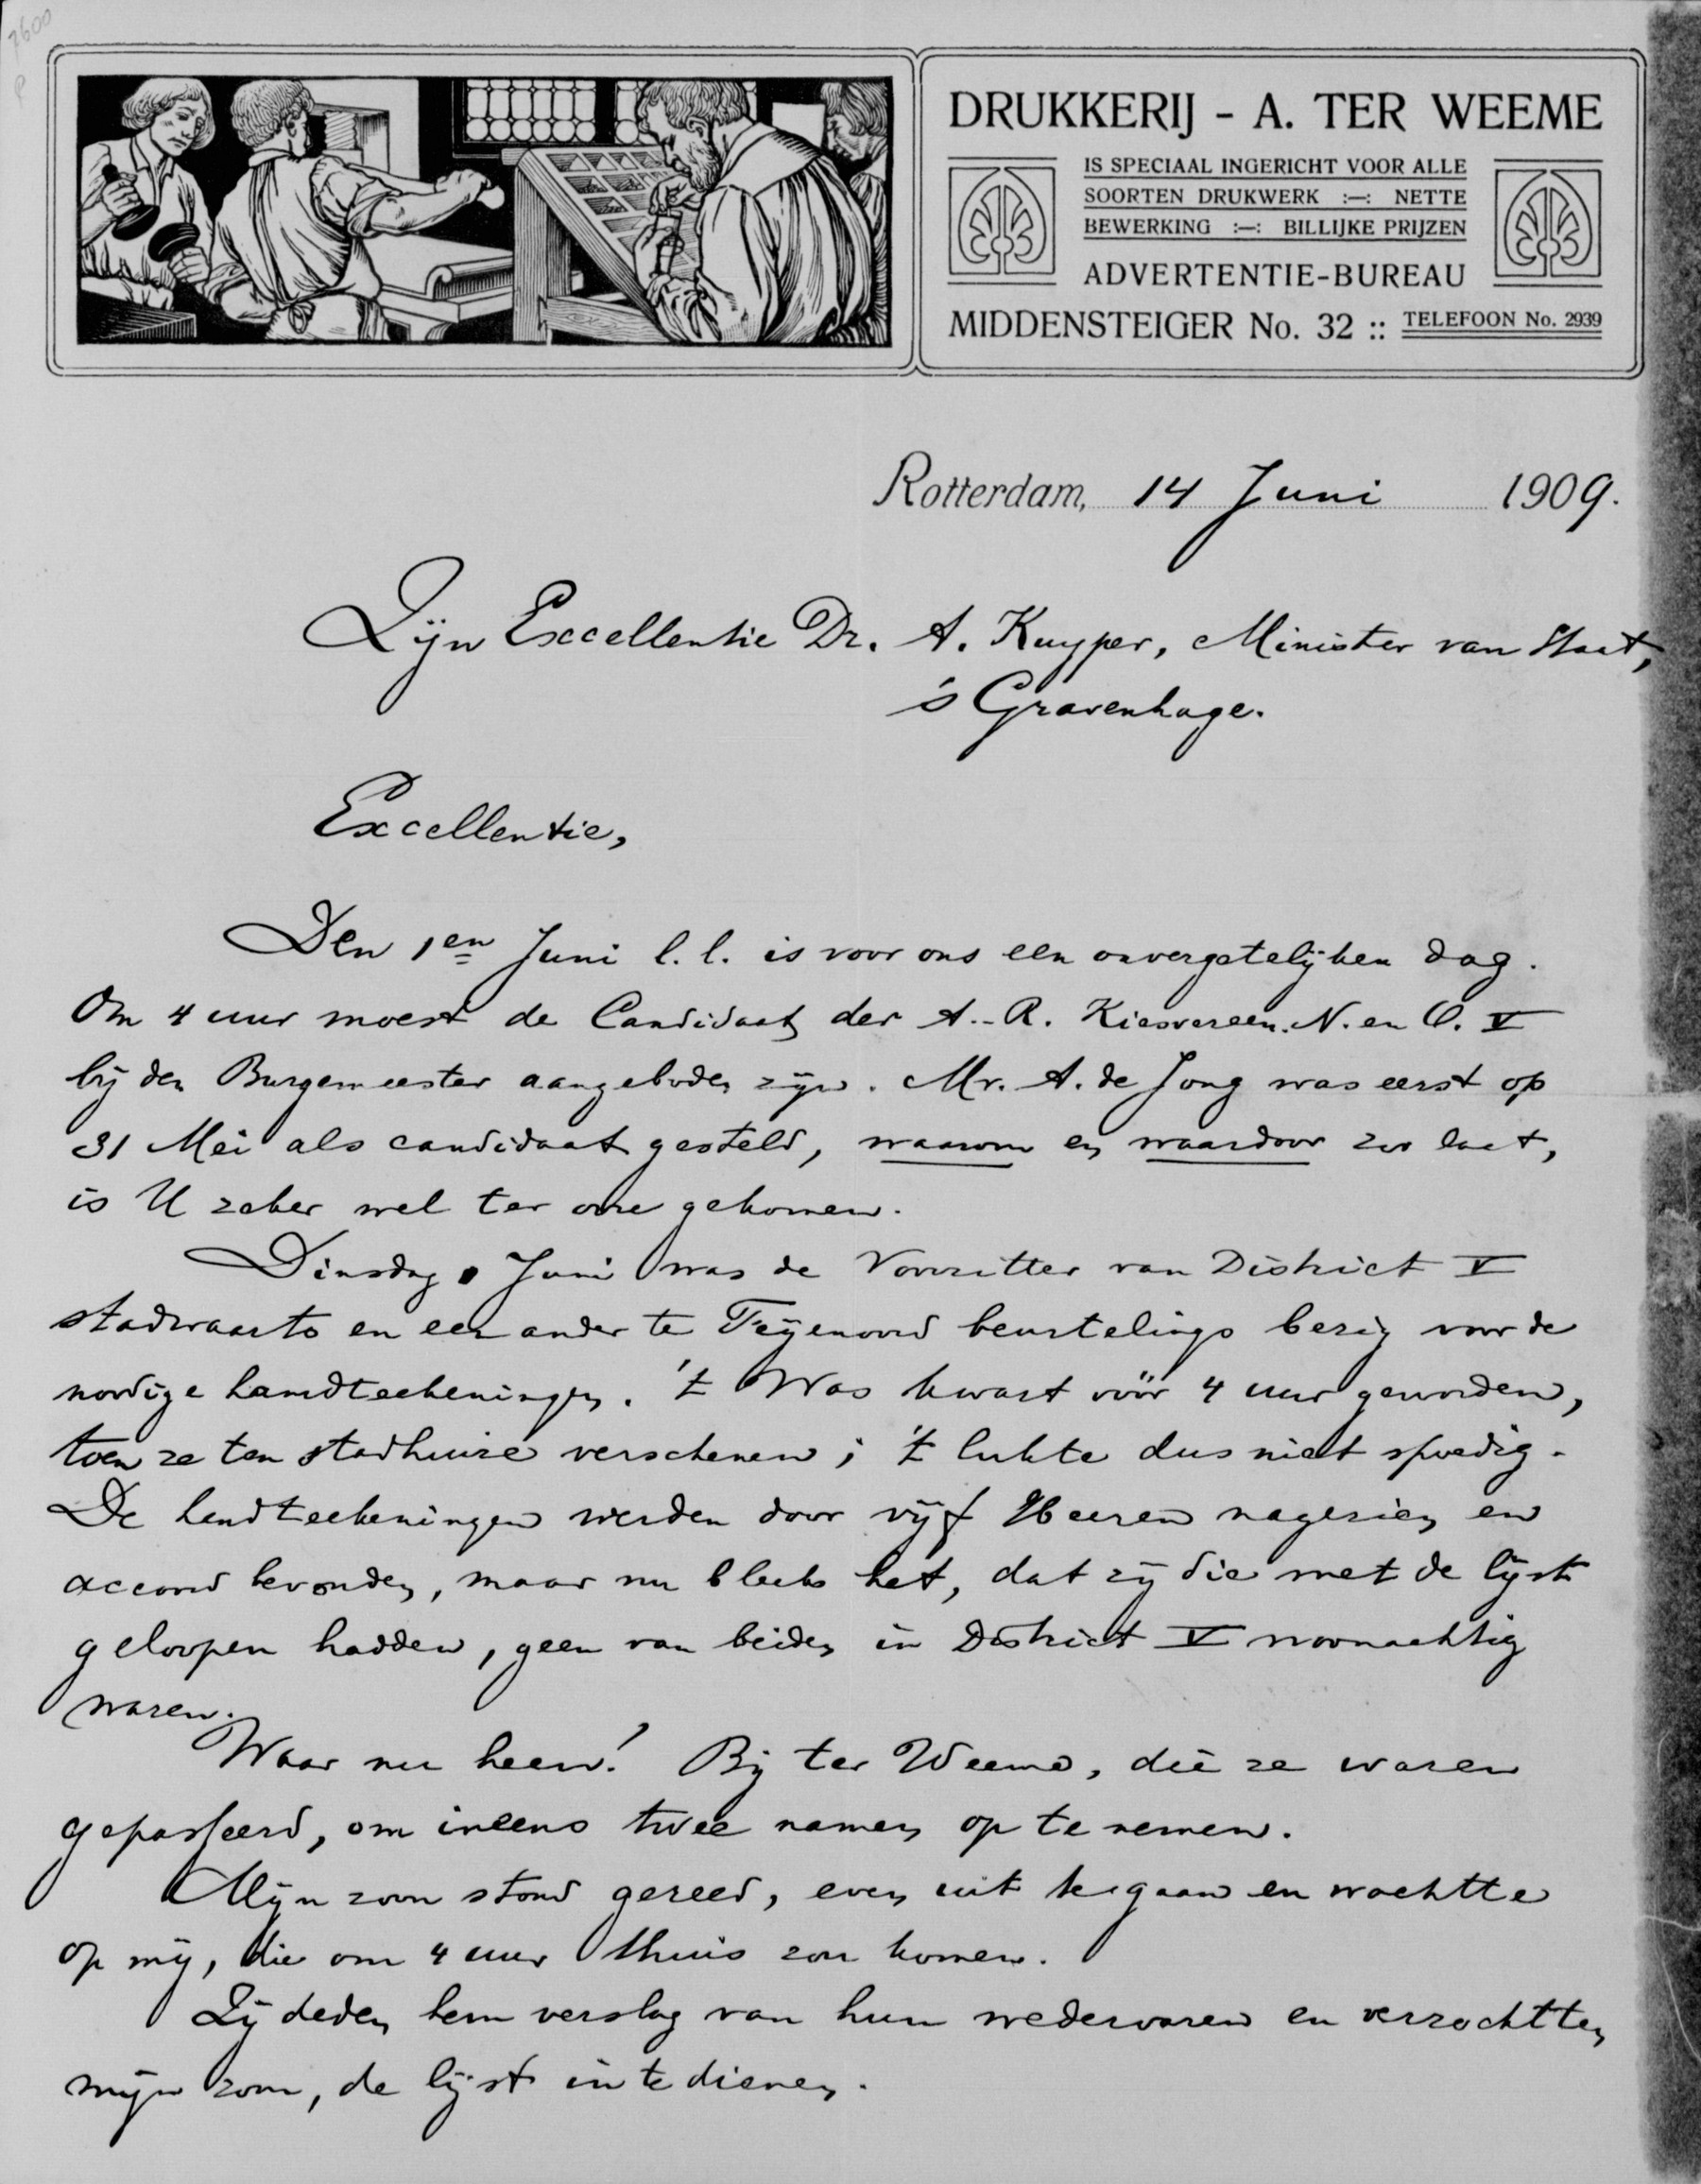 7600
DRUKKERIJ - A. TER WEEME
IS SPECIAAL INGERICHT VOOR ALLE
SOORTEN DRUKWERK :—: NETTE
BEWERKING :—: BILLIJKE PRIJZEN
ADVERTENTIE-BUREAU
MIDDENSTEIGER No. 32 :: TELEFOON No. 2939
Rotterdam, 14 Juni 1909.
Zijn Excellentie Dr. A. Kuyper, Minister van Staat,
's Gravenhage.
Excellentie,
Den 1en Juni l.l. is voor ons een onvergetelijken dag.
Om 4 uur moest de Candidaat der A.-R. Kiesvereen. N. en O. V
bij den Burgemeester aangeboden zijn. Mr. A. de Jong was eerst op
31 Mei als candidaat gesteld, waarom en waardoor zoo laat,
is U zeker wel ter oore gekomen.
Dinsdag 1 Juni was de Voorzitter van District V
stadwaarts en een ander te Feijenoord beurtelings bezig voor de
noodige handteekeningen. 't Was kwart vóór 4 uur geworden,
toen ze ten stadhuize verschenen; 't lukte dus niet spoedig.
De handteekeningen werden door vijf Heeren nagezien en
accoord bevonden, maar nu bleek het, dat zij die met de lijst
geloopen hadden, geen van beiden in District V woonachtig
waren.
Waar nu heen! Bij ter Weeme, die ze waren
gepasseerd, om ineens twee namen op te nemen.
Mijn zoon stond gereed, even uit te gaan en wachtte
op mij, die om 4 uur thuis zou komen.
Zij deden hem verslag van hun wedervaren en verzochtten
mijn zoon, de lijst in te dienen.